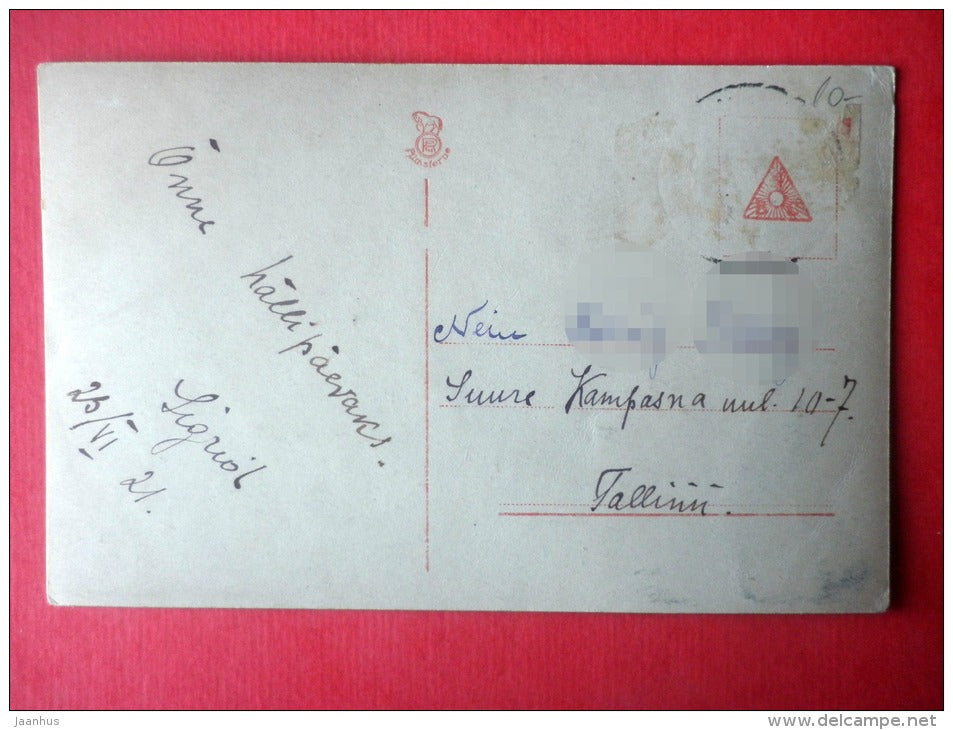 Õnne
hällipäevaks.
Sigrid
25/VI 21.
10-
Neiu
Suure Kompasna uul. 10-7.
Tallinn.
jaanhus
www.delcampe.net